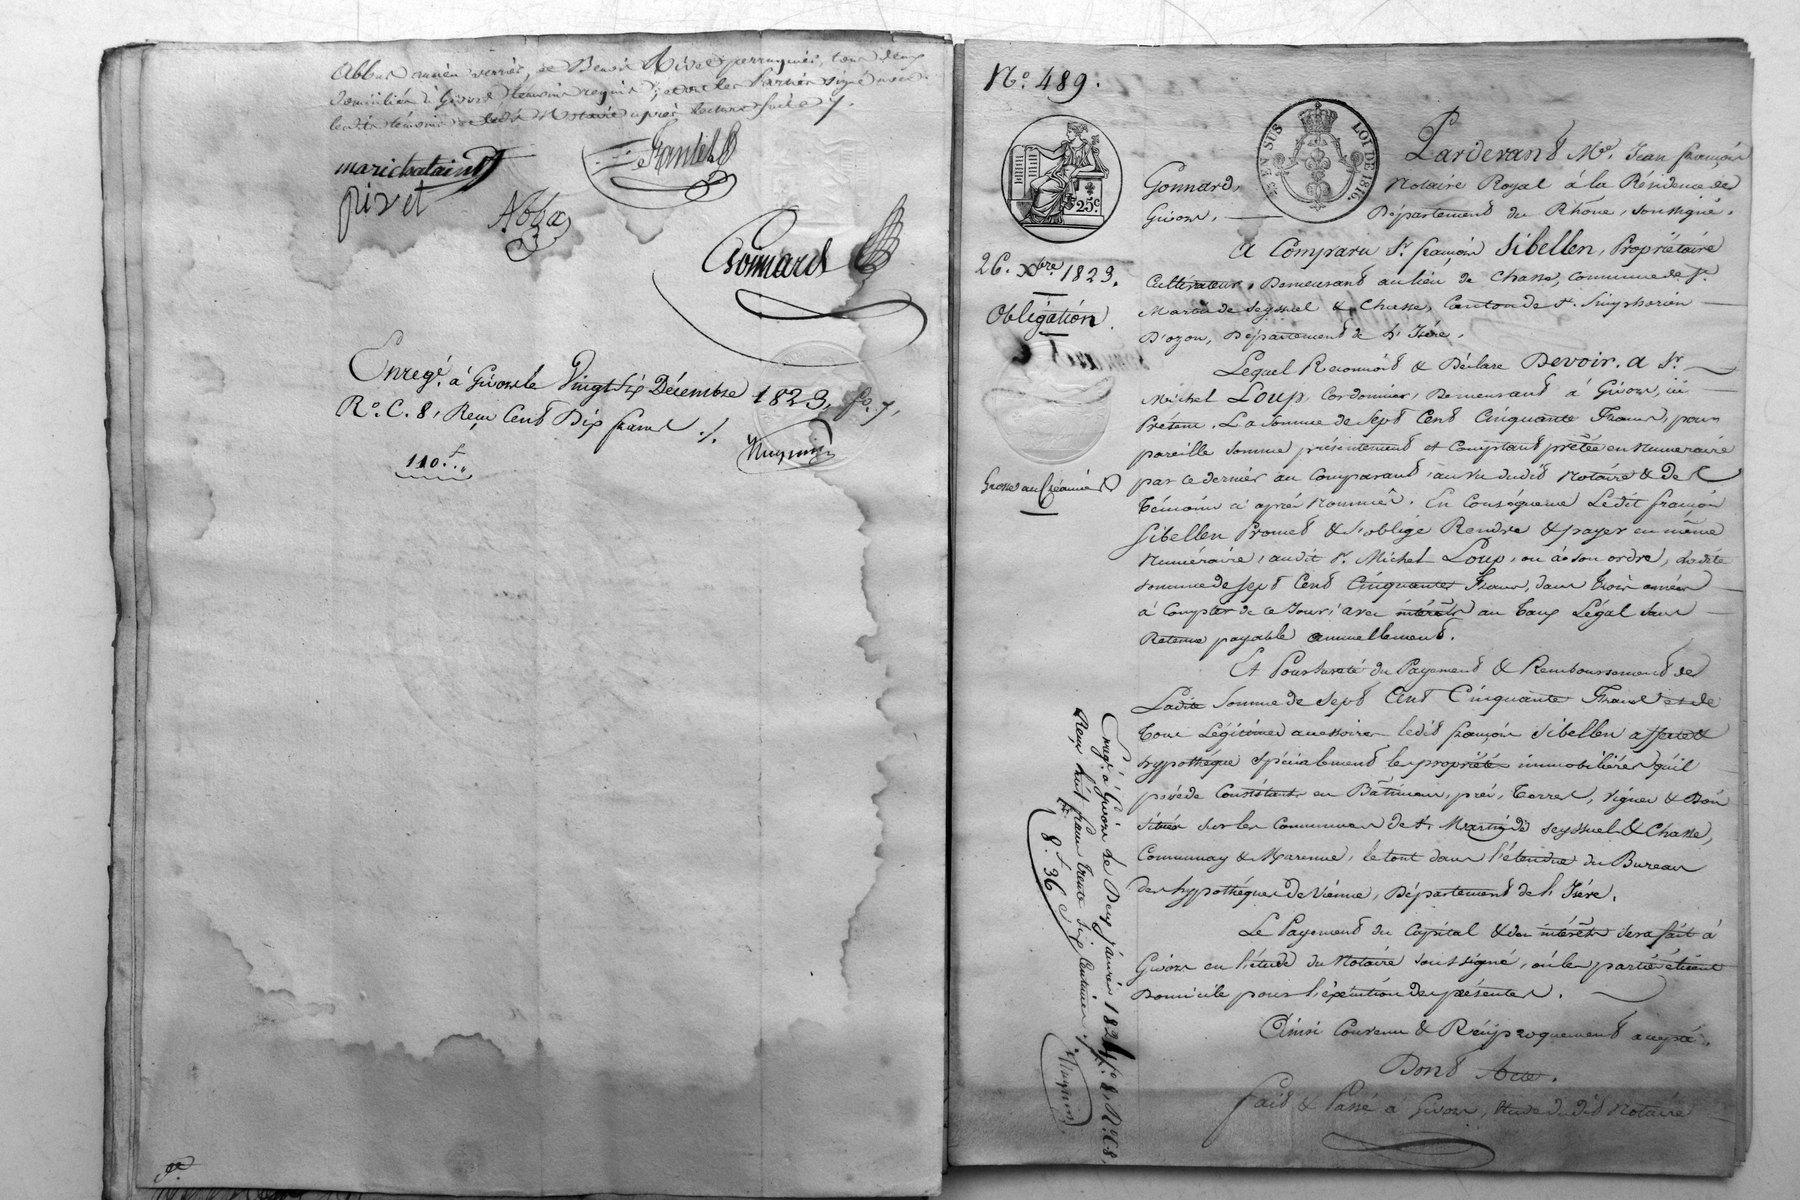 Abbat ancien verrier, et Benoit Rivet perruquier, tous deux
domiciliés à Givors, témoins requis; et ont les parties signé avec
lesdits témoins et ledit Notaire après lecture faite ./.
marichalaint
pivet
Abba
Gonnard
Enregé. à Givors le Vingt six Décembre 1823, fo. 7,
Ro. C. 8, Reçu Cent Dix francs ./.
110.f..
No. 489.
25c.
25 EN SUS
LOI DE 1816.
26. Xbre. 1823.
Obligation.
Grosse au Créancier
Pardevant Me. Jean françois
Gonnard, Notaire Royal à la Résidence de
Givors, Département du Rhône, soussigné.
A Comparu Sr. françois Sibellen, Propriétaire
Cultivateur, Demeurant au lieu de Chasse, Commune de St.
Martin de Seyssuel & Chasse, Canton de St. Simphorien
D'ozon, Département de L'Isère.
Lequel Reconnoit & Déclare Devoir a Sr.
Michel Loup, Cordonnier, Demeurant à Givors, ici
Présent, La Somme de Sept Cent Cinquante Francs, pour
pareille somme présentement et Comptant prêtée en Numéraire
par ce dernier au Comparant, au vu dudit Notaire & des
témoins ci après nommés. En Conséquence Ledit françois
Sibellen Promet & s'oblige Rendre & payer en même
Numéraire, audit Sr. Michel Loup, ou à son ordre, Ladite
somme de Sept Cent Cinquante Francs, dans trois années
à Compter de ce Jour, avec intérêts au Taux Légal sans
Retenue payable annuellement.
Et Pour sureté du Payement & Remboursement de
Ladite Somme de Sept Cent Cinquante Francs et de
tous Légitimes accessoires ledit françois Sibellen affecte &
hypothèque spécialement les propriétés immobilières qu'il
possède Consistant en Bâtimens, prés, Terres, Vignes & Bois
situés sur les Communes de St. Martin de Seyssuel & Chasse,
Communay & Marenne, le tout dans l'étendue du Bureau
des hypothèques de Vienne, Département de l'Isère.
Le Payement du Capital & des intérêts sera fait à
Givors en l'étude du Notaire soussigné, où les parties élisent
Domicile pour l'exécution des présentes.
Ainsi Convenu & Réciproquement accepté.
Dont Acte.
Fait & Passé à Givors, Etude dudit Notaire
Enregé. à Givors le Deux janvier 1824, fo. 8, Ro. C8,
Reçu huit francs trente six Centimes ./.
8.f 36.c